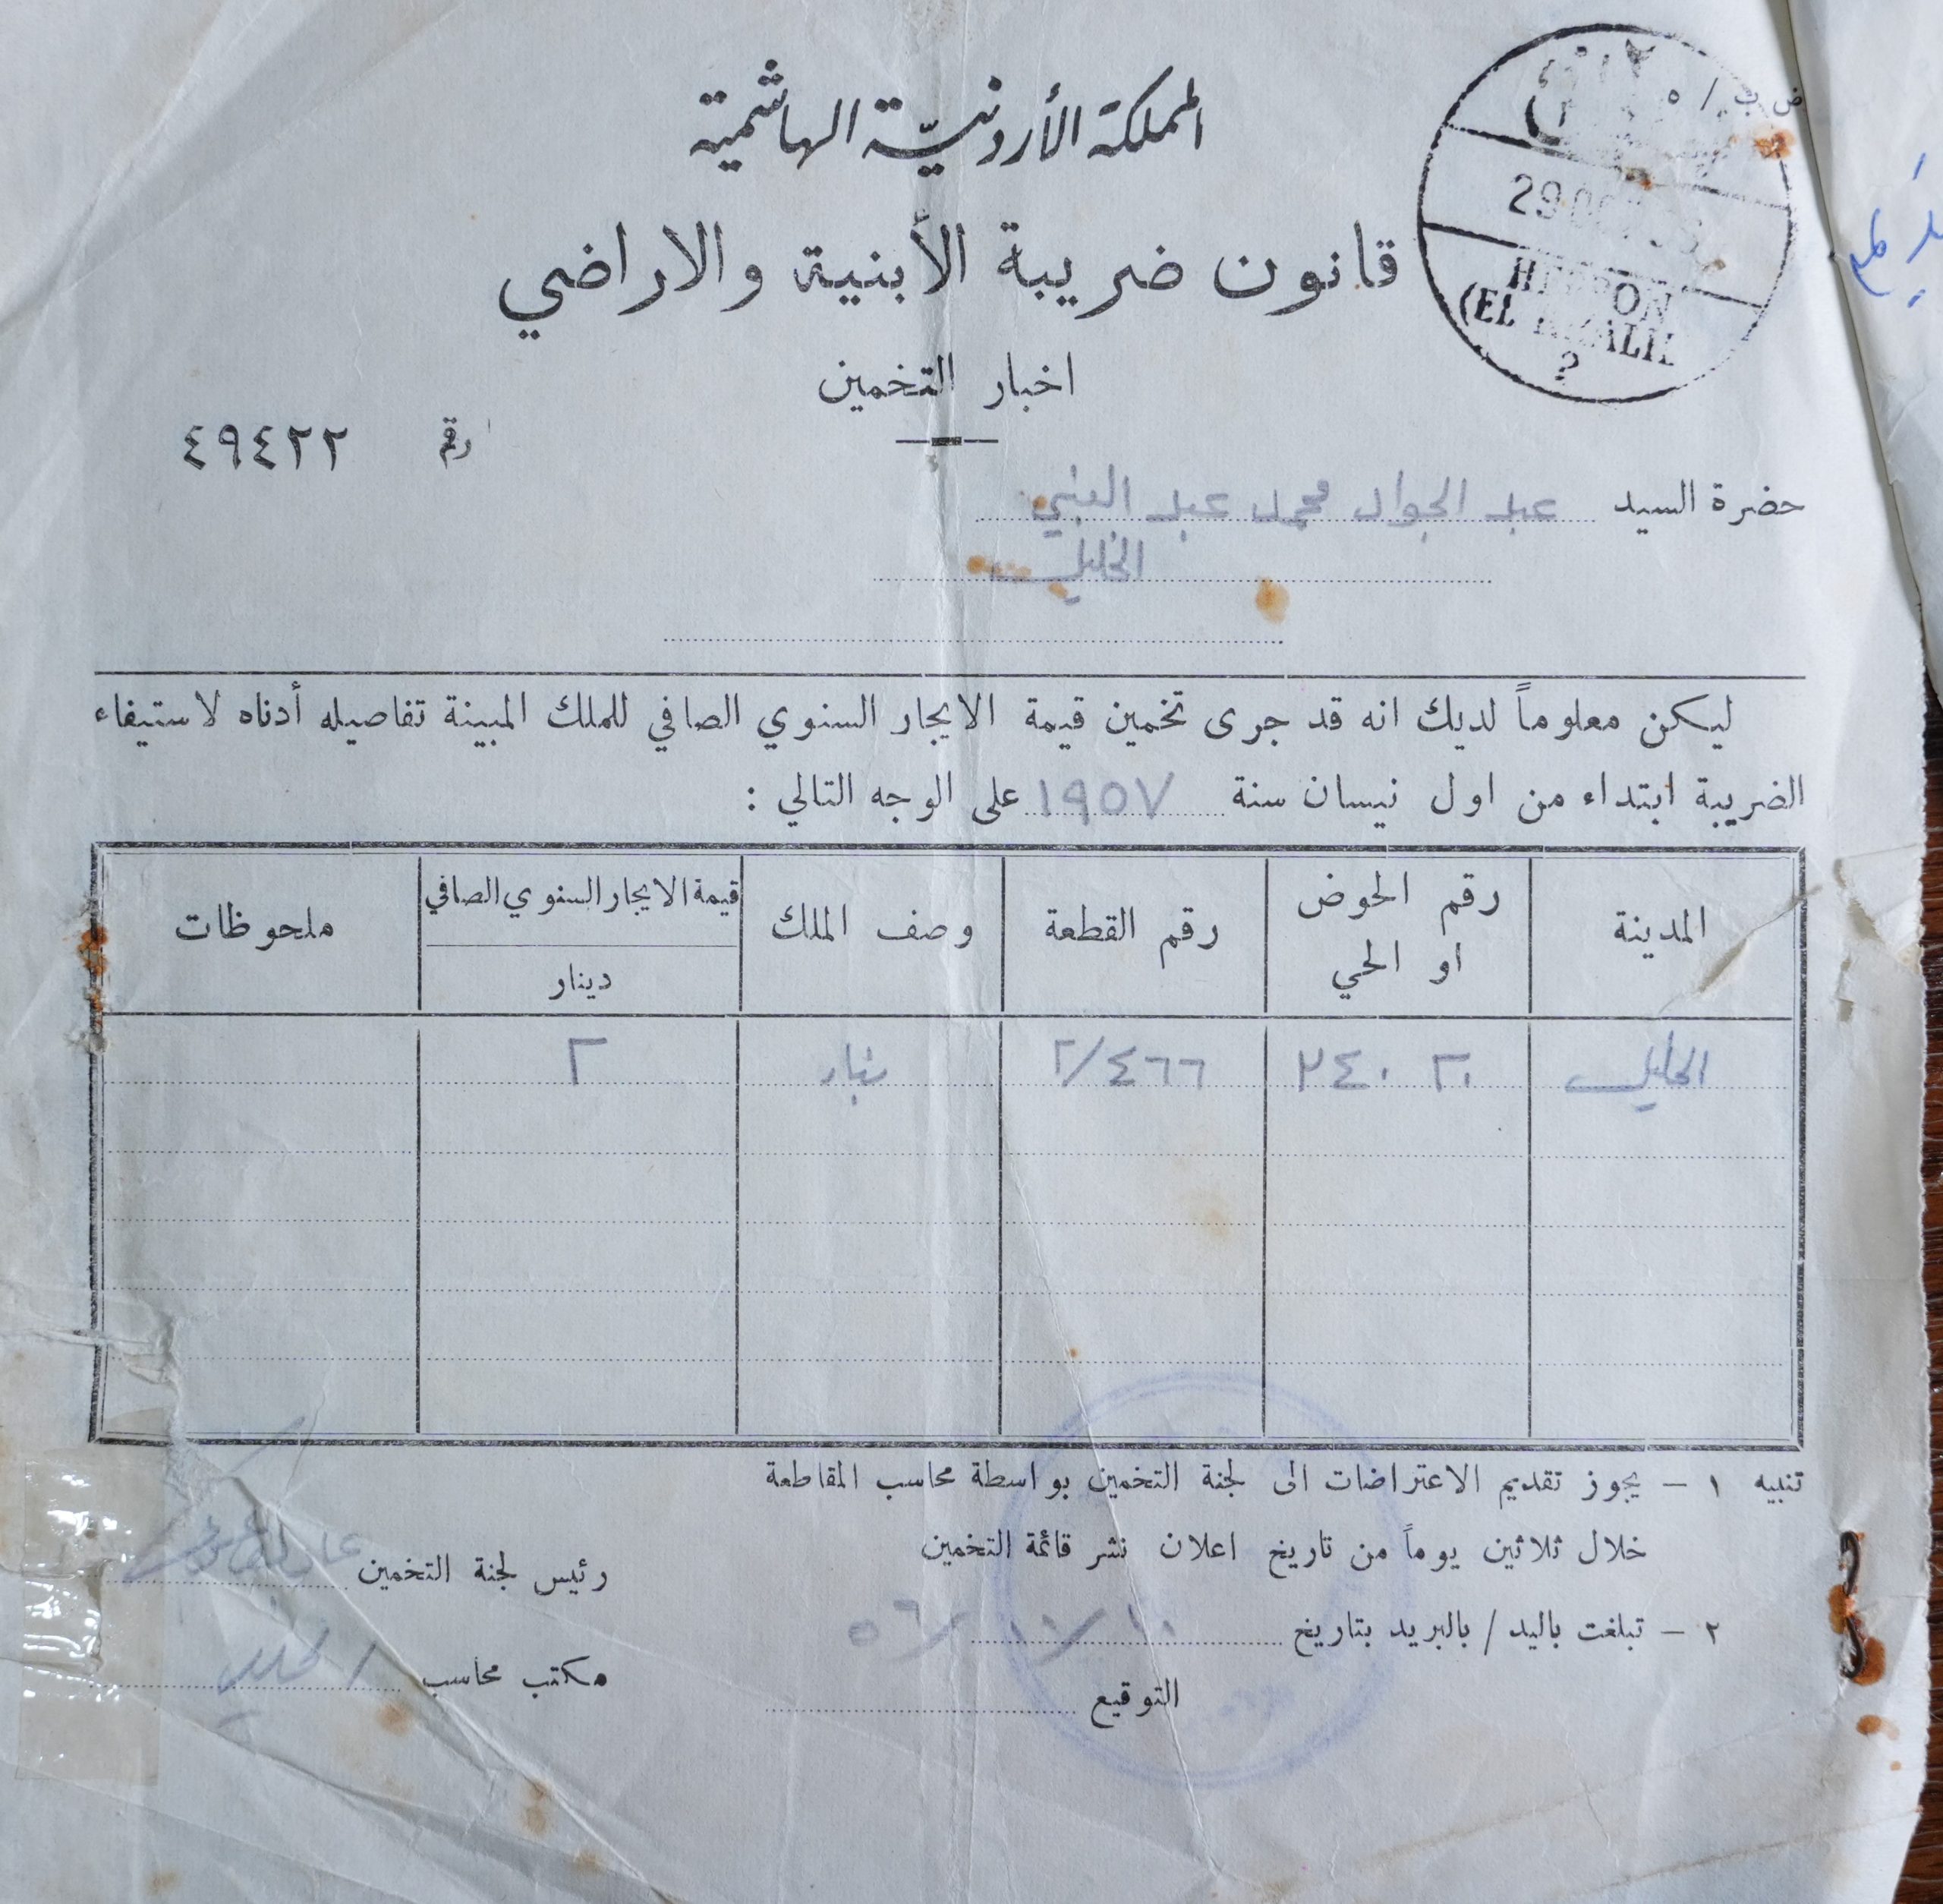 ض ب / ٥
المملكة الأردنيّة الهاشمية
قانون ضريبة الأبنية والاراضي
29 OC
HEBRON
(EL KHALIL
2
اخبار التخمين
رقم ٤٩٤٢٢
حضرة السيد عبد الجواد محمد عبد النبي
الخليل
ليكن معلوماً لديك انه قد جرى تخمين قيمة الايجار السنوي الصافي للملك المبينة تفاصيله أدناه لاستيفاء
الضريبة ابتداء من اول نيسان سنة ١٩٥٧ على الوجه التالي :
المدينة رقم الحوض او الحي رقم القطعة وصف الملك قيمة الايجار السنوي الصافي دينار ملحوظات
الخليل ٢٤٠٢٠ ٢/٤٦٦ ٢
تنبيه ١ – يجوز تقديم الاعتراضات الى لجنة التخمين بواسطة محاسب المقاطعة
خلال ثلاثين يوماً من تاريخ اعلان نشر قائمة التخمين
رئيس لجنة التخمين
٢ – تبلغت باليد / بالبريد بتاريخ ١٠/١٠/٥٦
مكتب محاسب الخليل
التوقيع